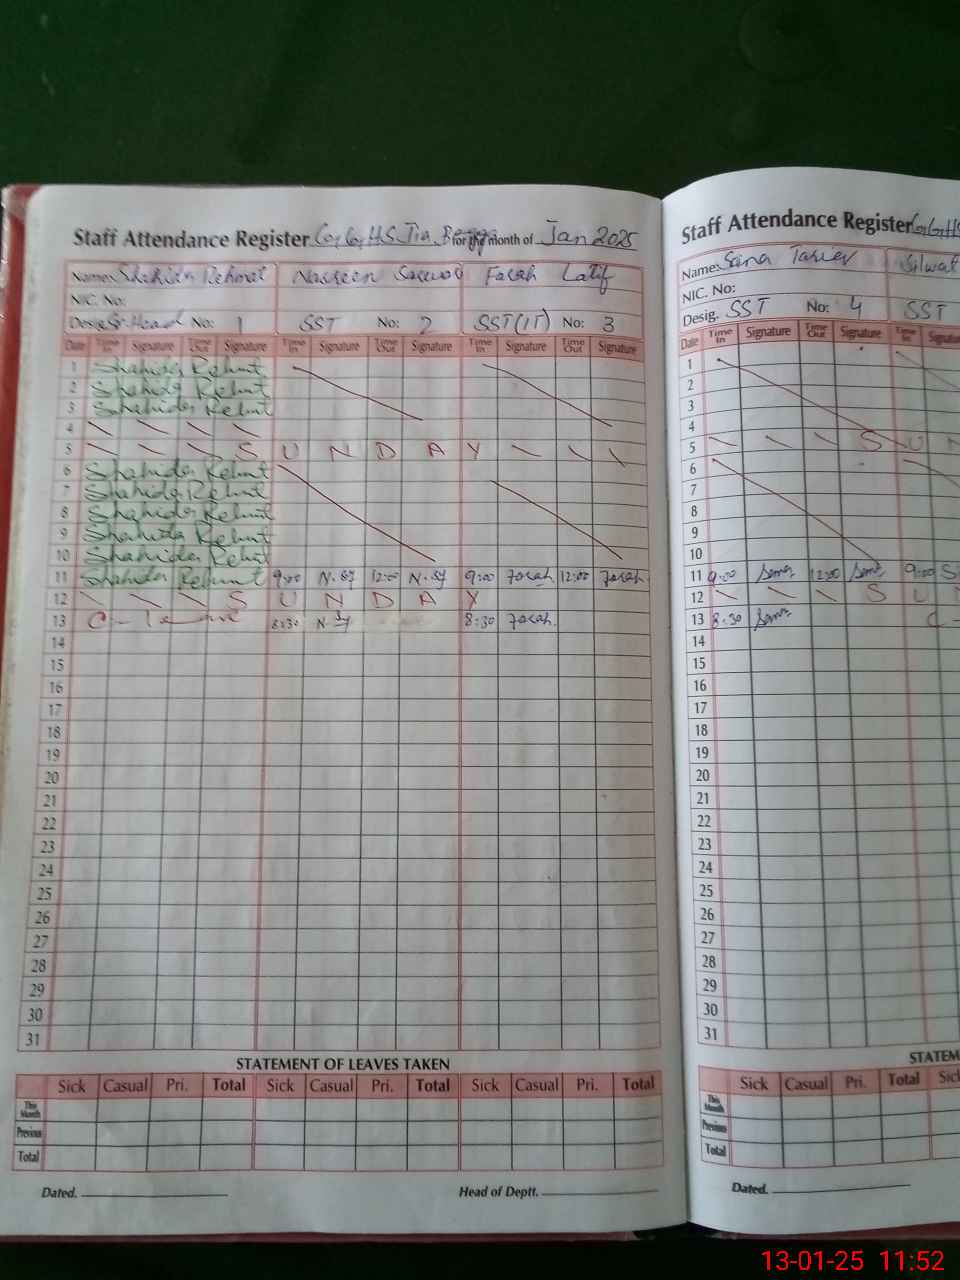 Staff Attendance Register G.G.H.S Jia Bagga for the month of Jan 2025
Name: Shahida Rehmat Nasreen Sarwar Farah Latif
NIC. No:
Desig. Sr. Head No: 1 SST No: 2 SST(IT) No: 3
Date Time In Signature Time Out Signature Time In Signature Time Out Signature Time In Signature Time Out Signature
1 Shahida Rehmt
2 Shahida Rehmt
3 Shahida Rehmt
4
5 S U N D A Y
6 Shahida Rehmt
7 Shahida Rehmt
8 Shahida Rehmt
9 Shahida Rehmt
10 Shahida Rehmt
11 Shahida Rehmt 9:00 12:00 9:00 Farah 12:00 Farah
12 S U N D A Y
13 C - leave 8:30 8:30 Farah
14
15
16
17
18
19
20
21
22
23
24
25
26
27
28
29
30
31
STATEMENT OF LEAVES TAKEN
Sick Casual Pri. Total Sick Casual Pri. Total Sick Casual Pri. Total
This Month
Previous
Total
Dated. Head of Deptt.
Staff Attendance Register G.G.H.S
Name: Sana Tariq
NIC. No:
Desig. SST No: 4 SST
Date Time In Signature Time Out Signature Time In
1
2
3
4
5 S U
6
7
8
9
10
11 9:00 12:00 9:00
12 S U
13 8:30 C -
14
15
16
17
18
19
20
21
22
23
24
25
26
27
28
29
30
31
STATEM
Sick Casual Pri. Total Sick
This Month
Previous
Total
Dated.
13-01-25 11:52